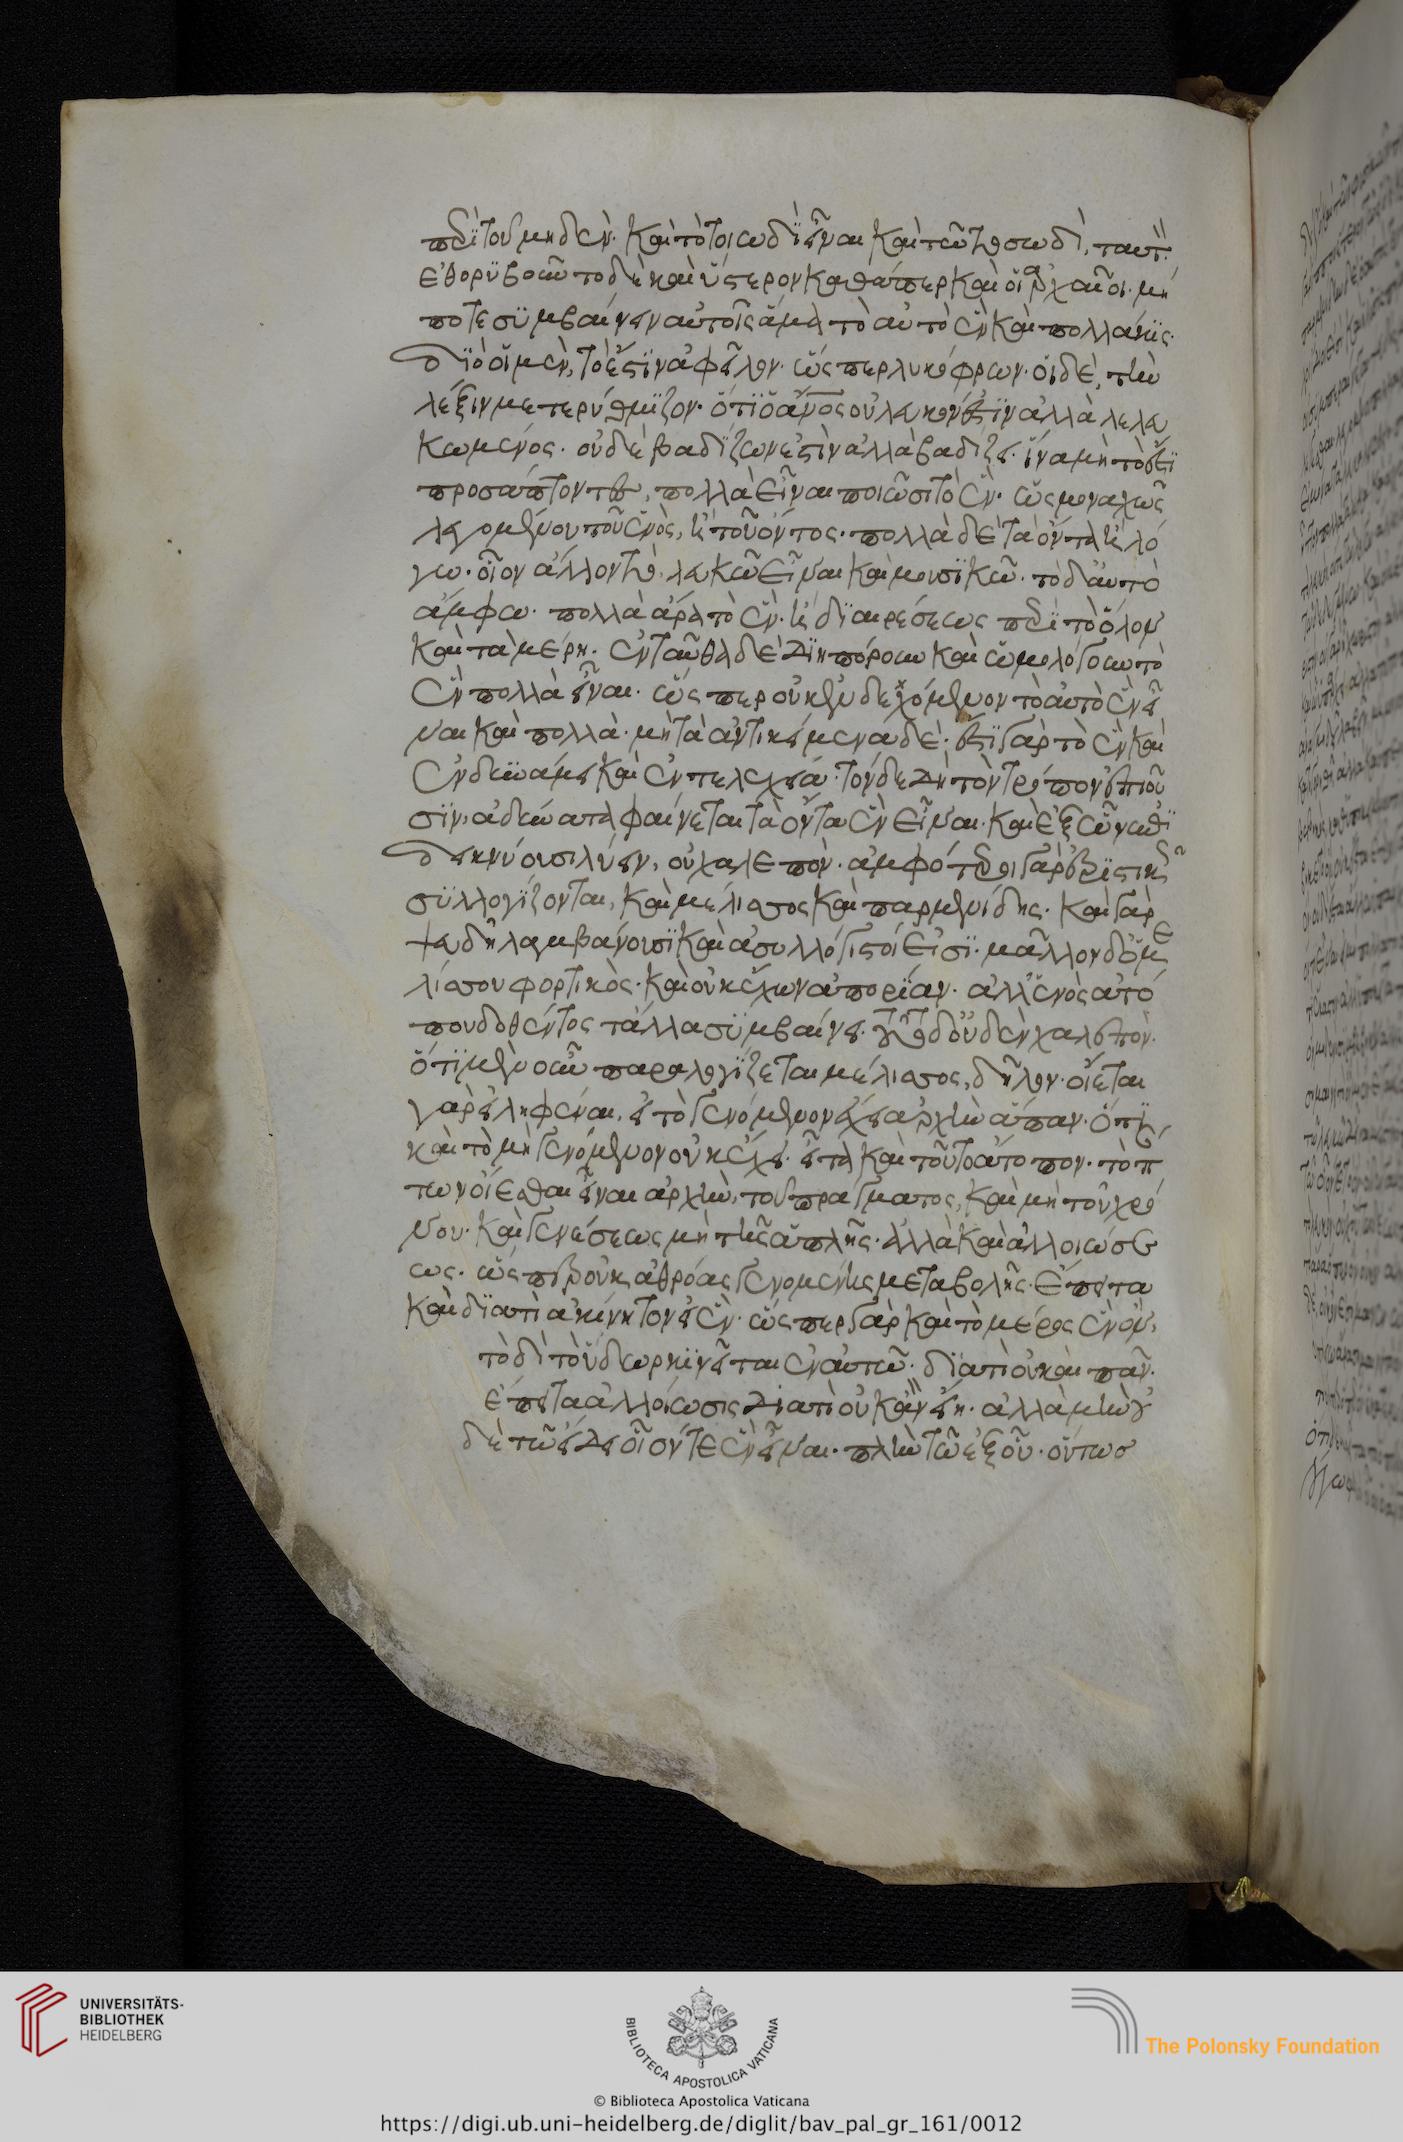 περὶ τοῦ μηδέν. καὶ τὸ τοιωδὶ εἶναι καὶ τῶ τοσωδί, ταυτὶ.
ἐθορυβοῦντο δὲ καὶ ὕστερον καθάπερ καὶ οἱ ἀρχαῖοι. μή
ποτε συμβαίνειν αὐτοῖς ἅμα τὸ αὐτὸ ἓν καὶ πολλάκις.
διὸ οἱ μὲν, τὸ ἔστιν ἀφεῖλον. ὥσπερ λυκόφρων. οἱ δὲ, τὴν
λέξιν μετερύθμιζον. ὅτι ὁ ἄνος οὐ λευκόν ἐστιν ἀλλὰ λελευ
κωμένος. οὐδὲ βαδίζων ἐστὶν ἀλλὰ βαδίζει. ἵνα μὴ τὸ ἐστὶ
προσάπτοντες, πολλὰ εἶναι ποιῶσι τὸ ἕν. ὡς μοναχῶς
λεγομένου τοῦ ἑνὸς, ἢ τοῦ ὄντος. πολλὰ δὲ τὰ ὄντα ἢ λό
γω. οἷον ἄλλον τὸ λευκῶ εἶναι καὶ μουσικῶ. τὸ δ' αὐτὸ
ἄμφω. πολλὰ ἄρα τὸ ἕν. ἢ διαιρέσεως περὶ τὸ ὅλον
καὶ τὰ μέρη. ἐνταῦθα δὲ διηπόρουν καὶ ὡμολόγουν τὸ
ἓν πολλὰ εἶναι. ὥσπερ οὐκ ἐνδεχόμενον τὸ αὐτὸ ἓν εἶ
ναι καὶ πολλὰ. μὴ τὰ ἀντικείμενα δέ. ἔστι γὰρ τὸ ἓν καὶ
ἐν δυνάμει καὶ ἐντελεχεία. τόνδε δὴ τὸν τρόπον ἐπιοῦ
σιν, ἀδύνατα φαίνεται τὰ ὄντα ἓν εἶναι. καὶ ἐξ ὧν ἐπι
δεικνύουσι λύειν, οὐ χαλεπὸν. ἀμφότεροι γὰρ ἐριστικῶς
συλλογίζονται, καὶ μέλισσος καὶ παρμενίδης. καὶ γὰρ
ψευδῆ λαμβάνουσι καὶ ἀσυλλόγιστοί εἰσι. μᾶλλον δ' ὁ με
λίσσου φορτικὸς. καὶ οὐκ ἔχων ἀπορίαν. ἀλλ' ἑνὸς ἀτό
που δοθέντος τἄλλα συμβαίνει. τοῦτο δ' οὐδὲν χαλεπὸν.
ὅτι μὲν οὖν παραλογίζεται μέλισσος, δῆλον. οἴεται
γὰρ εἰληφέναι, εἰ τὸ γενόμενον ἔχει ἀρχὴν ἅπαν. ὅτι
καὶ τὸ μὴ γενόμενον οὐκ ἔχει. εἶτα καὶ τοῦτο ἄτοπον. τὸ π
των οἴεσθαι εἶναι ἀρχὴν, τοῦ πράγματος, καὶ μὴ τοῦ χρό
νου. καὶ γενέσεως μὴ τῆς ἁπλῆς. ἀλλὰ καὶ ἀλλοιώσε
ως. ὥσπερ οὐκ ἀθρόας γενομένης μεταβολῆς. ἔπειτα
καὶ διατὶ ἀκίνητον εἰ ἕν. ὥσπερ γὰρ καὶ τὸ μέρος ἓν ὂν,
τὸ δὶ τὸ ὕδωρ κινεῖται ἐν αὐτῶ. διατὶ οὐ καὶ πᾶν.
ἔπειτα ἀλλοίωσις διατὶ οὐκ ἂν εἴη. ἀλλὰ μὴν οὐ
δὲ τῶ εἴδει οἷόν τε ἓν εἶναι. πλὴν τῶ ἐξ οὗ. οὕτως
UNIVERSITÄTS-
BIBLIOTHEK
HEIDELBERG
BIBLIOTECA APOSTOLICA VATICANA
© Biblioteca Apostolica Vaticana
The Polonsky Foundation
https://digi.ub.uni-heidelberg.de/diglit/bav_pal_gr_161/0012